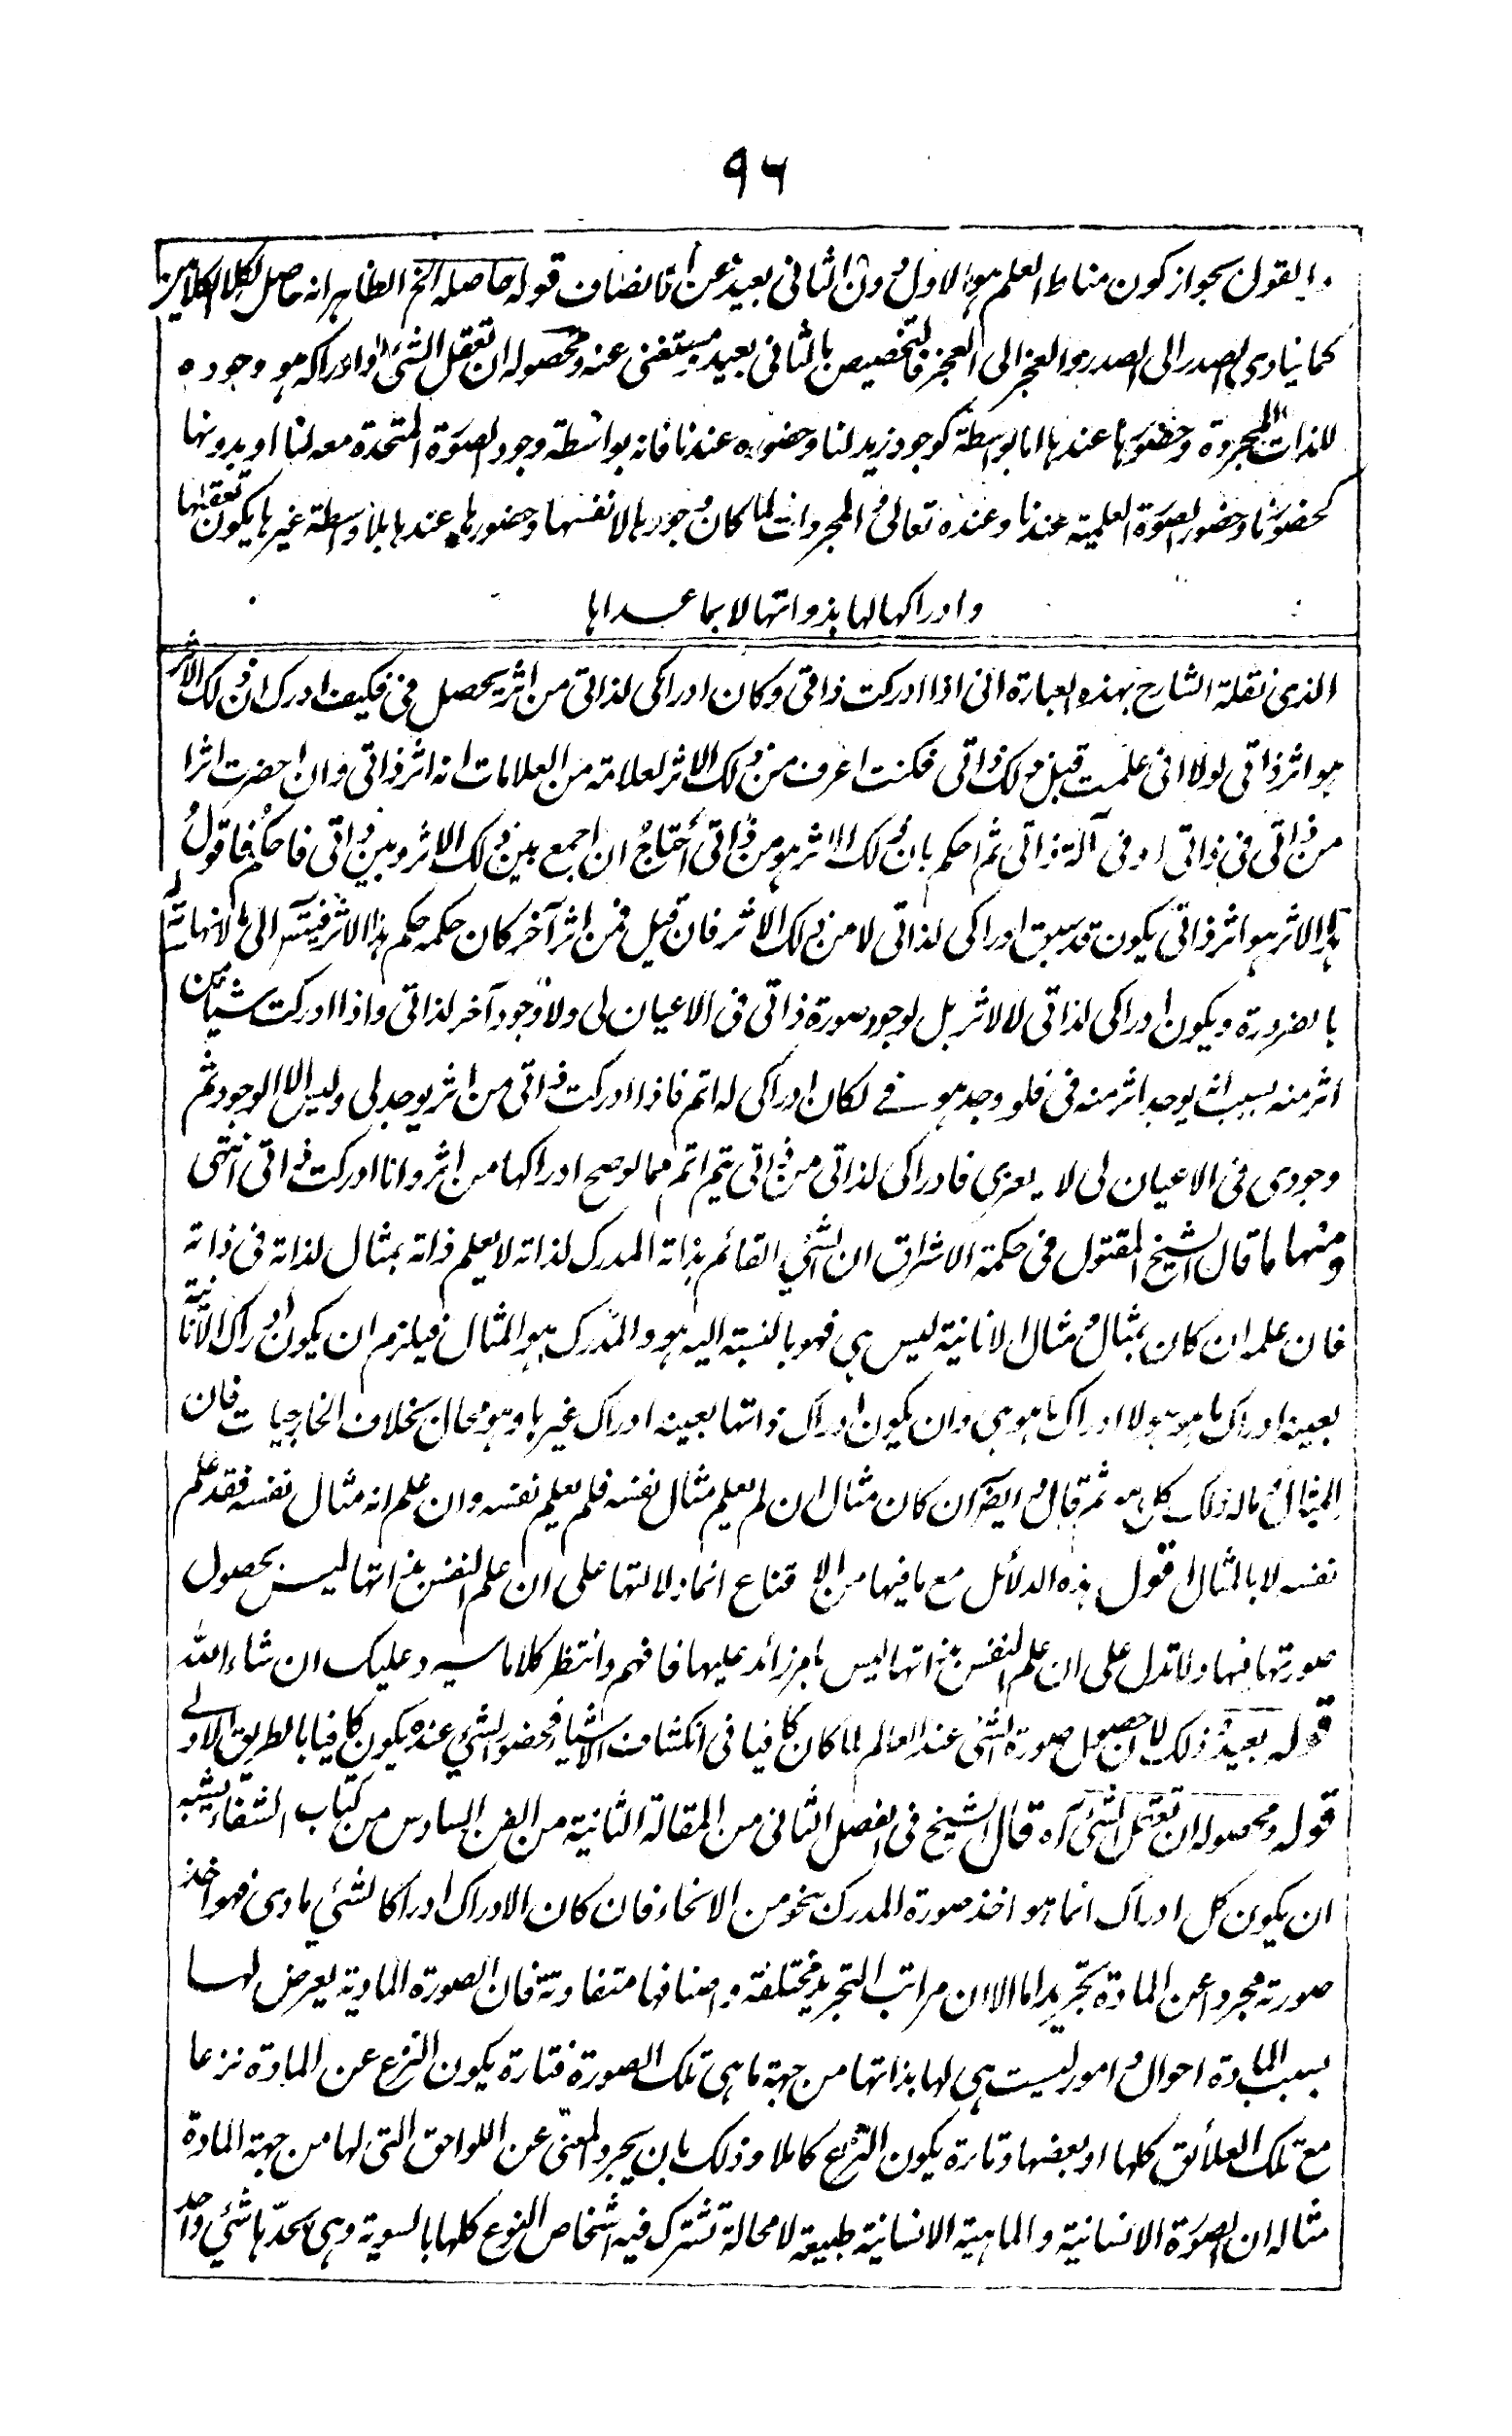 ٩٦
والقول بجواز كون مناط العلم هو الاول دون الثانى بعيد عن الانصاف قوله حاصله الخ الظاهر انه حاصل لكلا الكلامين
كما ينادى الصدر الى الصدر والعجز الى العجز فالتخصيص بالثانى بعيد مستغنى عنه ومحصوله ان تعقل الشئ وادراكه هو وجوده
للذات المجردة وحضورها عندها اما بواسطة كوجود زيد لنا وحضوره عندنا فانه بواسطة وجود الصورة المتحدة معه لنا او بدونها
كحضورنا وحضور الصورة العلمية عندنا وعنده تعالى والمجردات لما كان وجودها لانفسها وحضورها عندها بلا واسطة غيرها يكون تعقلها
وادراكها لها بذواتها لا بما عداها
الذى نقلة الشارح بهذه العبارة انى اذا ادركت ذاتى وكان ادراكى لذاتى من اثر يحصل فىّ فكيف ادرك ان ذلك الاثر
هو اثر ذاتى لولا انى علمت قبل ذلك ذاتى فكنت اعرف من ذلك الاثر لعلامة من العلامات انه اثر ذاتى وان احضرت اثرا
من ذاتى فى ذاتى او فى آلة ذاتى ثم احكم بان ذلك الاثر هو من ذاتى أحتاج ان اجمع بين ذلك الاثر وبين ذاتى فاحكم فاقول
هذا الاثر هو اثر ذاتى يكون قد سبق ادراكى لذاتى لا من ذلك الاثر فان قيل فمن اثر آخر كان حكمه حكم هذا الاثر فيتسـ الى لا نهاية
بالضرورة ويكون ادراكى لذاتى لا لاثر بل لوجود صورة ذاتى فى الاعيان لى ولا وجود آخر لذاتى واذا ادركت شيأ من
اثر منه بسبب اثر يوجد اثر منه فى فلو وجد هو فى لكان ادراكى له اتم فاذا ادركت ذاتى من اثر يوجد لى وليس الا الوجود ثم
وجودى فى الاعيان لى لا يعزى فادراكى لذاتى من ذاتى يتم اتم مما لو صح ادراكها من اثر وانا ادركت ذاتى انتهى
ومنها ما قال الشيخ المقتول فى حكمة الاشراق ان الشئ القائم بذاته المدرك لذاته لا يعلم ذاته بمثال لذاته فى ذاته
فان علمه ان كان بمثال ومثال الانانية ليس هى فهو بالنسبة اليه هو والمدرك هو المثال فيلزم ان يكون ادراك الانانية
بعينه ادراك ما هو هو لا ادراك ما هو هى وان يكون ادراك ذاتها بعينه ادراك غيرها وهو محال بخلاف الخارجيات فان
المثال وما له ذلك كل هو ثم قال وايضا ان كان مثال ان لم يعلم مثال نفسه فلم يعلم نفسه وان علم انه مثال نفسه فقد علم
نفسه لا بالمثال اقول هذه الدلائل مع ما فيها من الاقناع انما دلالتها على ان علم النفس بذاتها ليس بحصول
صورتها فيها ولا تدل على ان علم النفس بذاتها ليس بامر زائد عليها فافهم وانتظر كلاما سيرد عليك ان شاء الله
قوله بعيد ذلك لان حصول صورة الشئ عند العالم لما كان كافيا فى انكشاف الاشياء فحضور الشئ عنده يكون كافيا بالطريق الاولى
قوله ومحصوله ان تعقل الشئ آه قال الشيخ فى الفصل الثانى من المقالة الثانية من الفن السادس من كتاب الشفاء يشبه
ان يكون كل ادراك انما هو اخذ صورة المدرك بنحو من الانحاء فان كان الادراك ادراكا لشئ مادى فهو اخذ
صورته مجردا عن المادة تجريدا ما الا ان مراتب التجريد مختلفة واصنافها متفاوتة فان الصورة المادية يعرض لها
بسبب المادة احوال وامور ليست هى لها بذاتها من جهة ما هى تلك الصورة فتارة يكون النزع عن المادة نزعا
مع تلك العلائق كلها او بعضها وتارة يكون النزع كاملا وذلك بان يجرد المعنى عن اللواحق التى لها من جهة المادة
مثاله ان الصورة الانسانية والماهية الانسانية طبيعة لا محالة تشترك فيه اشخاص النوع كلها بالسوية وهى بحدها شئ واحد